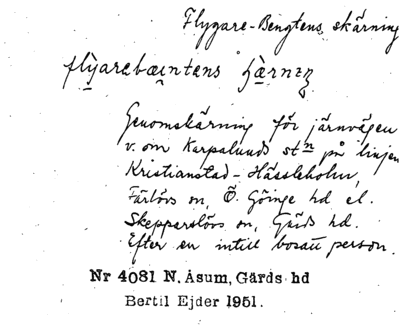 Flygare-Bengtens skärning
Genomskärning för järnvägen
v. om Karpalunds stn på linjen
Kristianstad - Hässleholm,
Färlövs sn, Ö. Göinge hd el.
Skepparslövs sn, Gärds hd.
Efter en intill bosatt person.
Nr 4081 N. Åsum, Gärds hd
Bertil Ejder 1951.